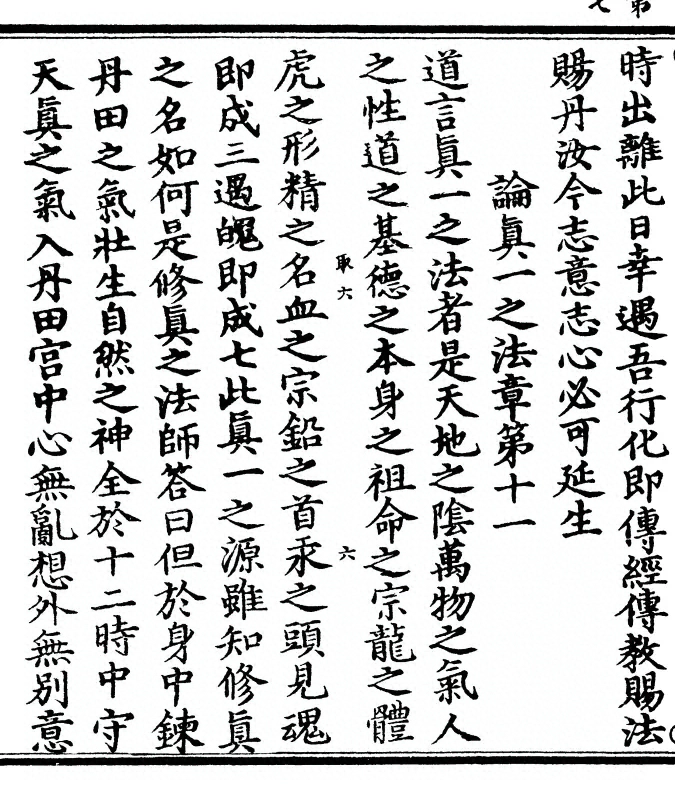 時出離此日幸遇吾行化即傳經傳教賜法
賜丹汝今志意志心必可延生
論眞一之法章第十一
道言眞一之法者是天地之陰萬物之氣人
之性道之基德之本身之祖命之宗龍之體
取六
六
虎之形精之名血之宗鉛之首汞之頭見魂
即成三遇魄即成七此眞一之源雖知修眞
之名如何是修眞之法師答曰但於身中鍊
丹田之氣壯生自然之神全於十二時中守
天眞之氣入丹田宮中心無亂想外無別意